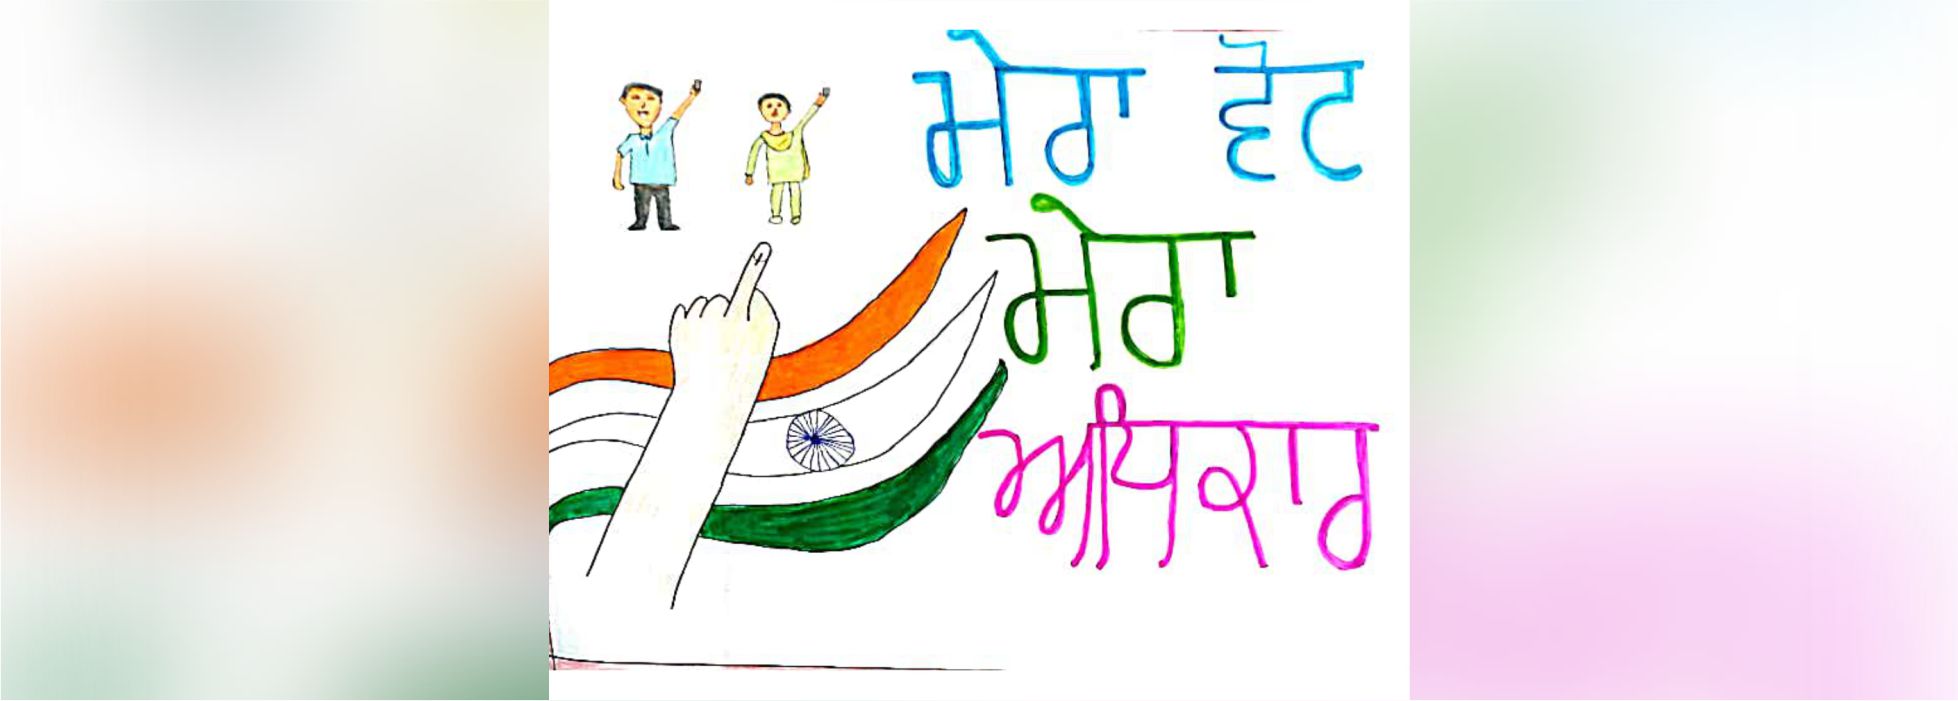 ਮੇਰਾ ਵੋਟ
ਮੇਰਾ
ਅਧਿਕਾਰ